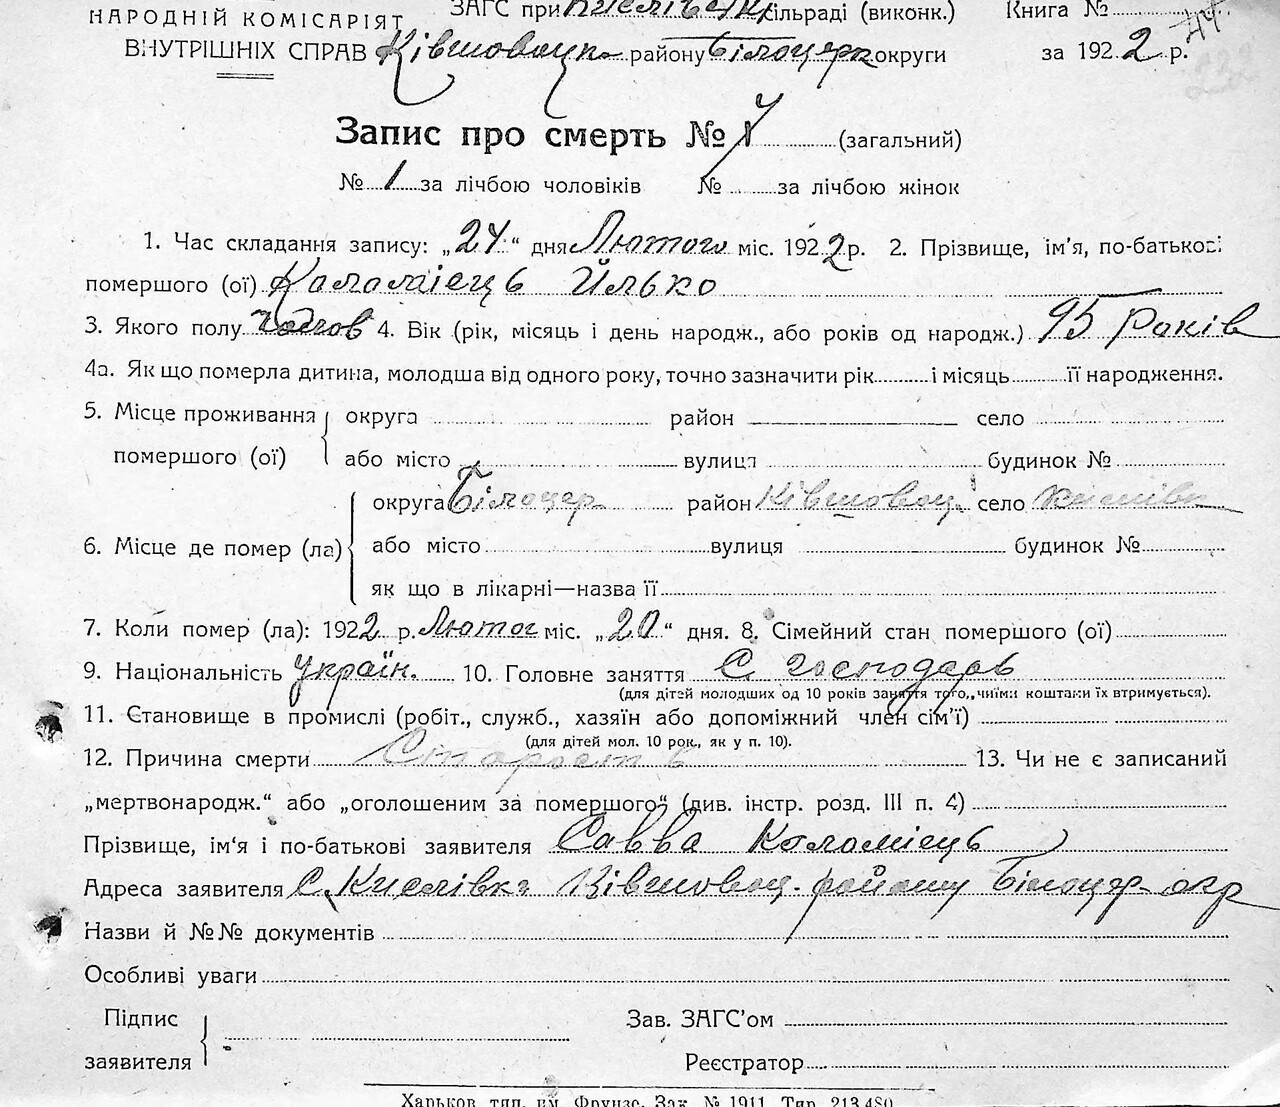 НАРОДНІЙ КОМІСАРІЯТ ЗАГС при Кислівськ. сільраді (виконк.) Книга №
ВНУТРІШНІХ СПРАВ Ківшовацьк. району Білоцерк округи за 1922 р.
Запис про смерть № (загальний)
№ 1 за лічбою чоловіків № за лічбою жінок
1. Час складання запису: „24“ дня Лютого міс. 1922 р. 2. Прізвище, ім'я, по-батькові
помершого (ої) Каламієць Йлько
3. Якого полу чолов 4. Вік (рік, місяць і день народж., або років од народж.) 95 Років
4а. Як що померла дитина, молодша від одного року, точно зазначити рік і місяць її народження.
5. Місце проживання помершого (ої) округа район село
або місто вулиця будинок №
6. Місце де помер (ла) округа Білоцер район Ківшовац. село Кислівк
або місто вулиця будинок №
як що в лікарні—назва її
7. Коли помер (ла): 1922 р. Лютог міс. „20“ дня. 8. Сімейний стан помершого (ої)
9. Національність Україн. 10. Головне заняття С. господарь
(для дітей молодших од 10 років заняття того, чиїми коштами їх втримується).
11. Становище в промислі (робіт., служб., хазяїн або допоміжний член сім'ї)
(для дітей мол. 10 рок., як у п. 10).
12. Причина смерти Старость 13. Чи не є записаний
„мертвонародж.“ або „оголошеним за помершого“ (див. інстр. розд. III п. 4)
Прізвище, ім'я і по-батькові заявителя Савва Коломієць
Адреса заявителя С. Кислівка Ківшовац. району Білоцер. окр
Назви й №№ документів
Особливі уваги
Підпис заявителя Зав. ЗАГС'ом
Реєстратор
Харьков тип. им. Фрунзе. Зак. № 1911. Тир. 213.480